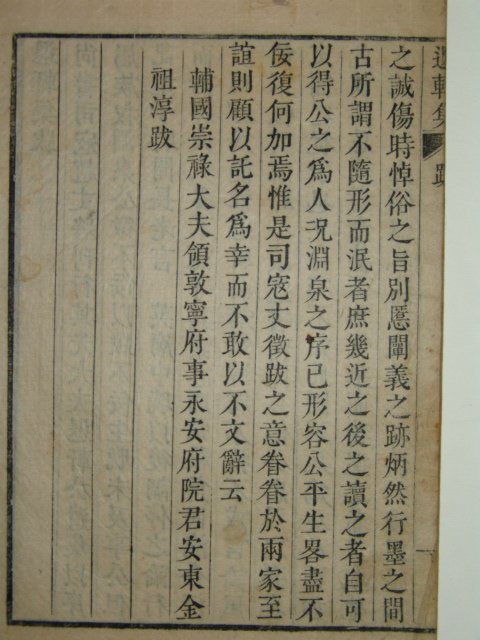 軒集 跋
之誠傷時悼俗之旨別慝闡義之跡炳然行墨之間
古所謂不隨形而泯者庶幾近之後之讀之者自可
以得公之爲人況淵泉之序已形容公平生畧盡不
佞復何加焉惟是司寇丈徵跋之意眷眷於兩家至
誼則顧以託名爲幸而不敢以不文辭云
輔國崇祿大夫領敦寧府事永安府院君安東金
祖淳跋